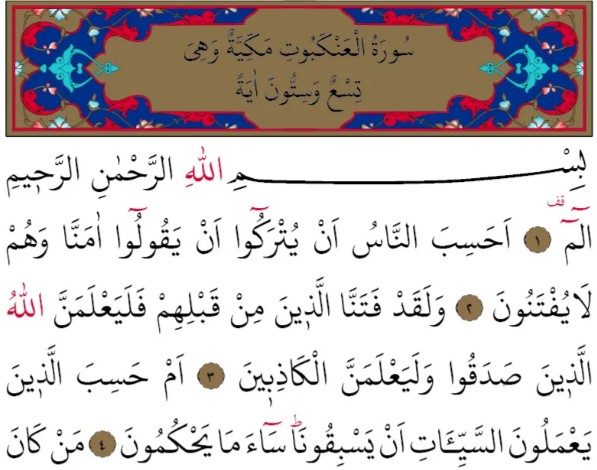 سُورَةُ الْعَنْكَبُوتِ مَكِّيَّةٌ وَهِىَ
تِسْعٌ وَسِتُّونَ اٰيَةً
بِسْمِ اللّٰهِ الرَّحْمٰنِ الرَّح۪يمِ
الٓمٓ ۚ قف ﴿١﴾ اَحَسِبَ النَّاسُ اَنْ يُتْرَكُٓوا اَنْ يَقُولُٓوا اٰمَنَّا وَهُمْ
لَا يُفْتَنُونَ ﴿٢﴾ وَلَقَدْ فَتَنَّا الَّذ۪ينَ مِنْ قَبْلِهِمْ فَلَيَعْلَمَنَّ اللّٰهُ
الَّذ۪ينَ صَدَقُوا وَلَيَعْلَمَنَّ الْكَاذِب۪ينَ ﴿٣﴾ اَمْ حَسِبَ الَّذ۪ينَ
يَعْمَلُونَ السَّيِّـَٔاتِ اَنْ يَسْبِقُونَاۜ سَٓاءَ مَا يَحْكُمُونَ ﴿٤﴾ مَنْ كَانَ